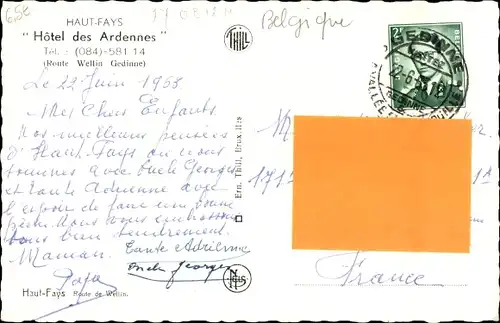 6,50
HAUT-FAYS
"Hôtel des Ardennes"
Tél. : (084)-581 14
(Route Wellin Gedinne)
THILL
Belgique
2F
GEDINNE
22-6
Le 22 Juin 1958
Mes Chers Enfants.
Nos meilleures pensées
d'Haut-Fays où nous
sommes avec Oncle Georges
et Tante Adrienne avec
l'espoir de faire une bonne
pêche. Nous vous embrassons
tous bien tendrement.
Maman. Tante Adrienne
Papa Oncle Georges
Haut-Fays Route de Wellin.
Ern. Thill, Bruxelles
NELS
M
171
France